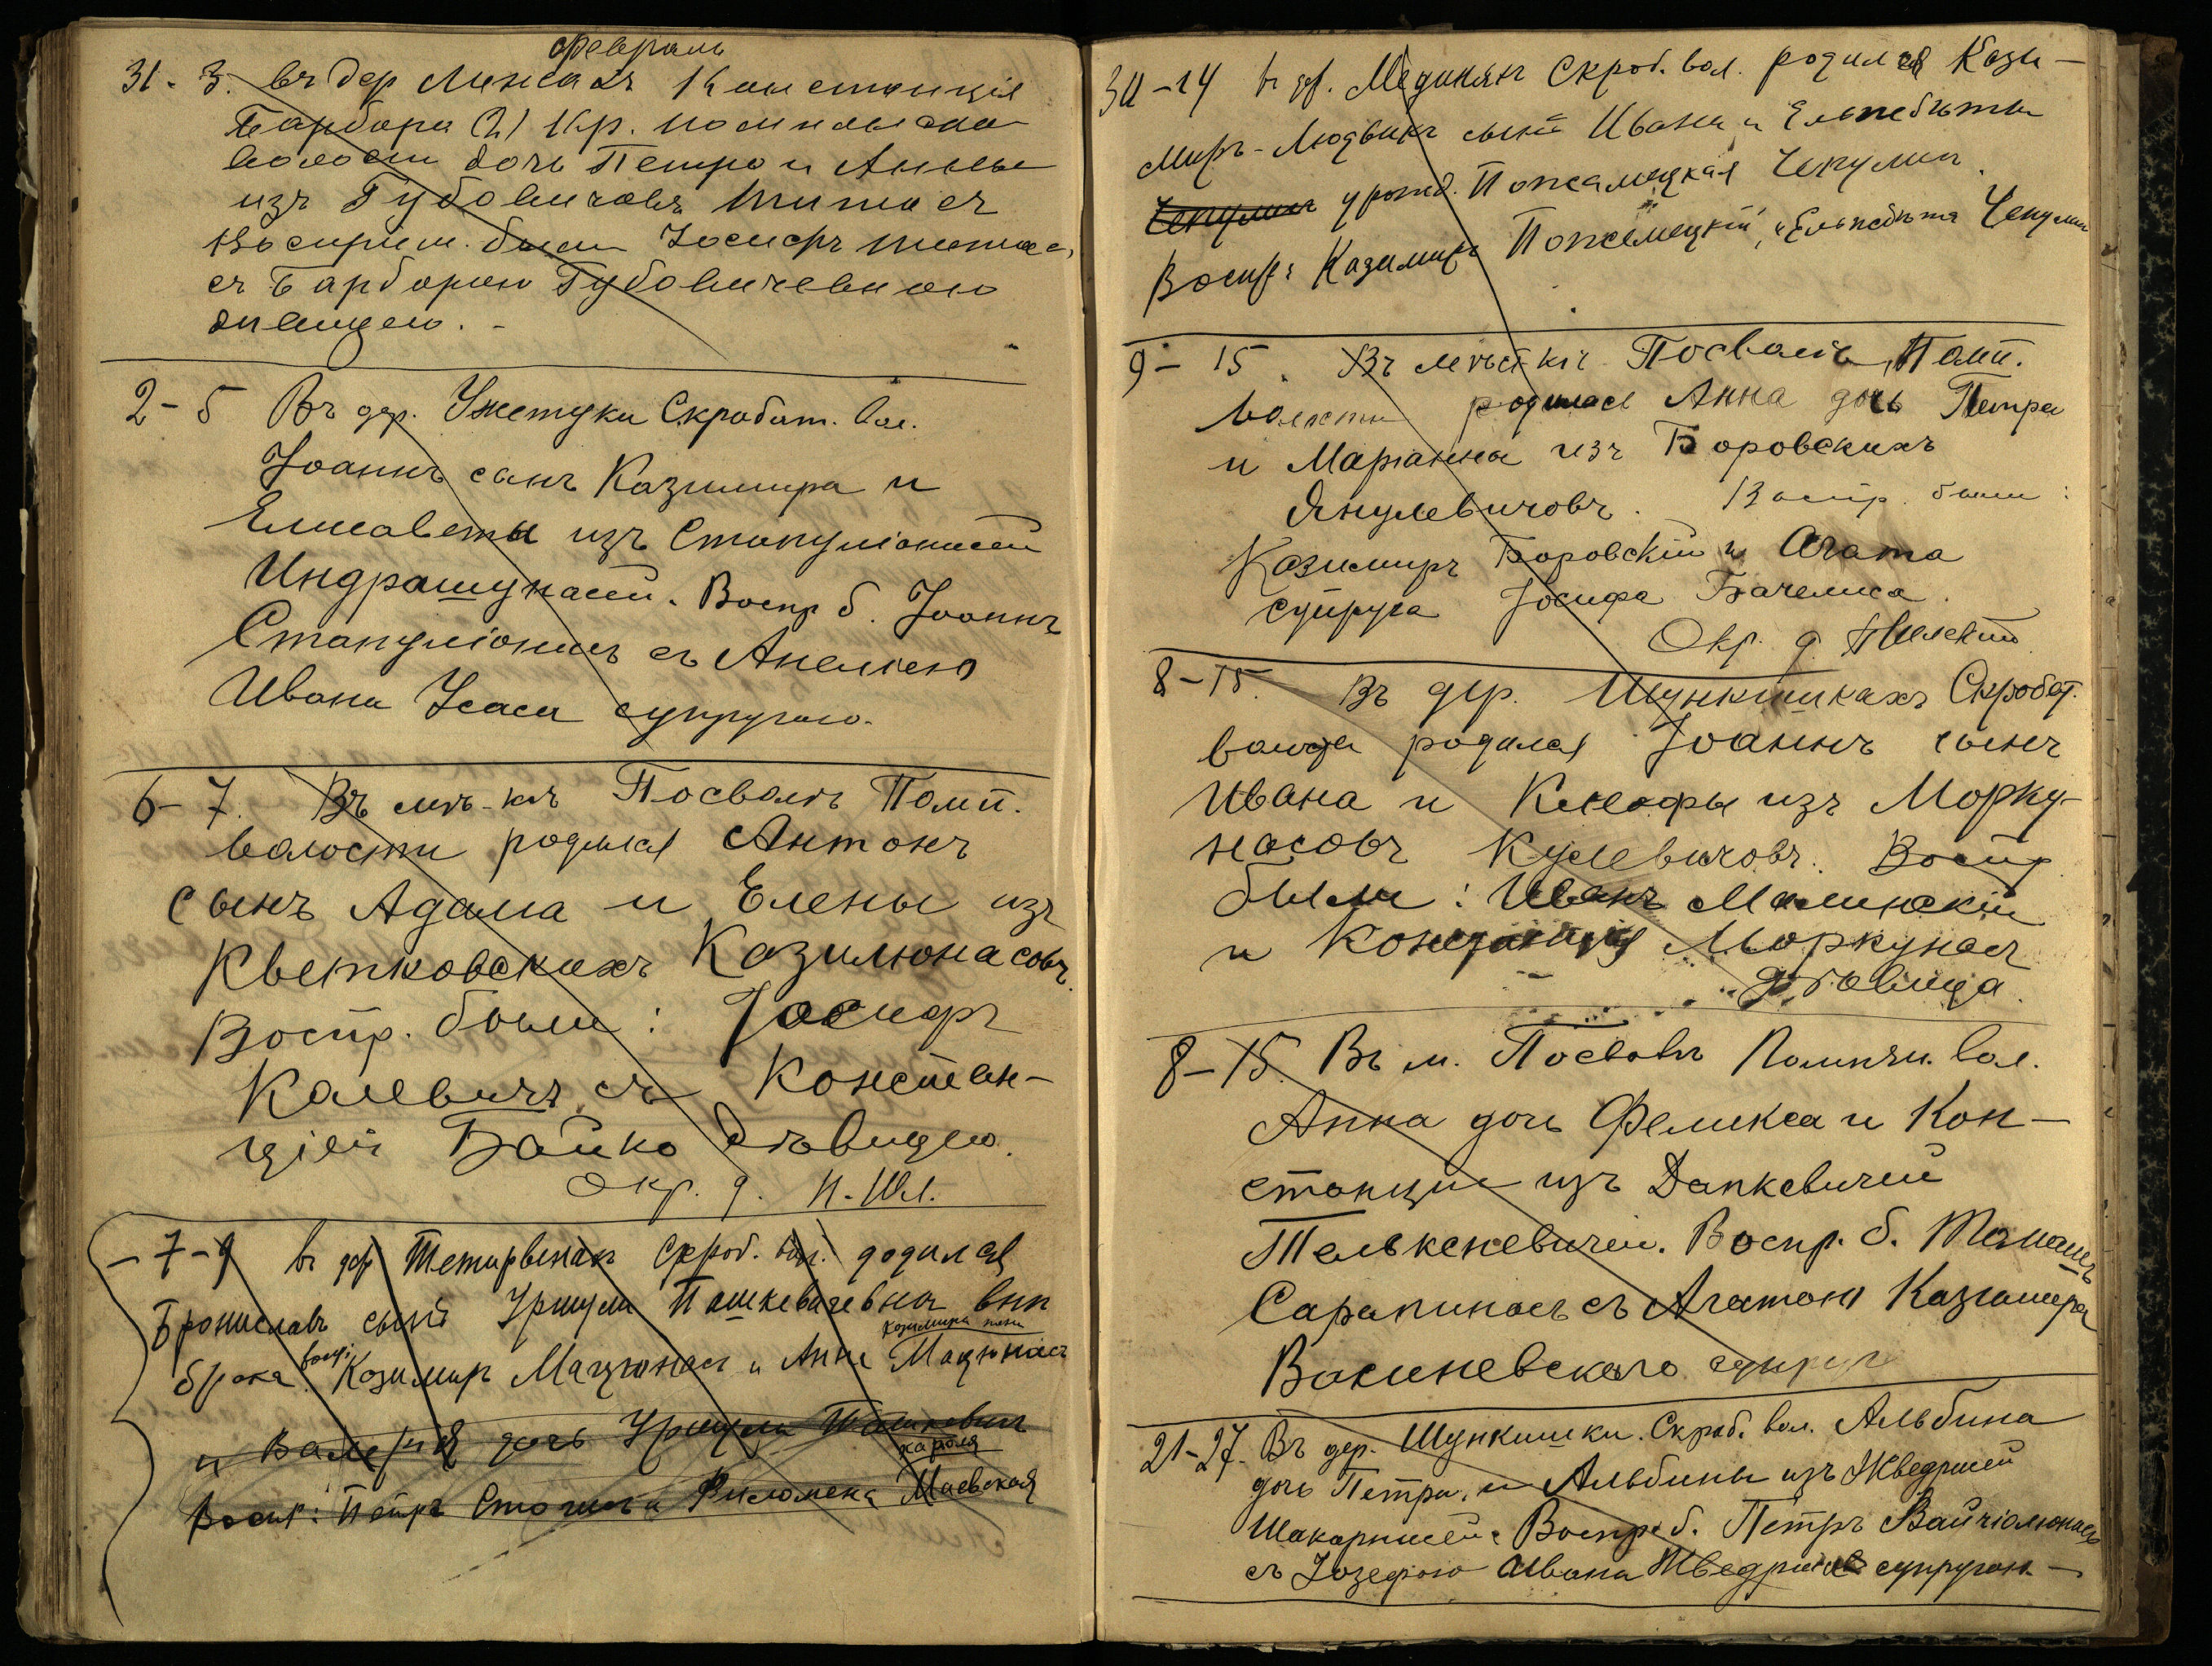 февраль
31 - 3. въ дер Линкахъ Констанція
Барбора (2) Кр. Помпянской
волости дочь Петра и Анны
изъ Губовичовъ Титасъ
Воспріем. были Іосифъ Титасъ
съ Барборою Губовичевною
дѣвицею. -
2 - 5 Въ дер. Ужетуки Скробот. вол.
Іоаннъ сынъ Казимира и
Елисаветы изъ Стапуліонисей
Индрашунасей. Воспр б. Іоаннъ
Стапуліонисъ съ Анеліею
Ивана Усаса супругою.
6 - 7. Въ мѣ-кѣ Посволѣ Помп.
волости родился Антонъ
сынъ Адама и Елены изъ
Кветковскихъ Казилюнасовъ.
Воспр. были: Іосифъ
Калевичъ съ Констан-
ціей Бойко дѣвицею.
Окр. д. Н. Шл.
- 7 - 9 въ дер Тетирвенахъ Скроб. вол. родился
Брониславъ сынъ Уршули Пашкевичевна внѣ
Казимира жена
брака. восп: Казимиръ Мацюнасъ и Анна Мацюнасъ
и Валерія дочь Уршули Пашкевичъ
Кароля
Воспр: Петръ Стогисъ и Филомена Маевская
30 - 14 въ дер. Медикяхъ Скроб. вол. родился Кази-
миръ-Людвикъ сынъ Ивана и Ельжбѣты
Чепулисъ урожд. Пожемецкая Чепулисъ.
Воспр: Казимиръ Пожемецкій и Ельжбѣта Чепулисъ
9 - 15. Въ мѣст-кѣ Посволѣ, Помп.
волости родилась Анна дочь Петра
и Маріанны изъ Боровскихъ
Янулевичовъ. Воспр. были:
Казимиръ Боровскій и Агата
супруга Іосифа Бачелиса.
Окр. д.
8 - 15. Въ дер. Шункишкахъ Скробот.
волости родился Іоаннъ сынъ
Ивана и Клеофы изъ Морку-
насовъ Кулевичовъ. Воспр
были: Иванъ Малинскій
и Констанція Моркунасъ
дѣвица.
8 - 15. Въ м. Посволѣ Помпян. вол.
Анна дочь Феликса и Кон-
станціи изъ Дапкевичей
Телькеневичей. Воспр. б. Томашъ
Сарапинасъ съ Агатою Казимира
Восиневскаго супруг
21 - 27. Въ дер. Шункишки. Скроб. вол. Альбина
дочь Петра, и Альбины изъ Жведрисей
Шакарнисей. Воспр. б. Петръ Вайчіолюнасъ
съ Іозефою Ивана Жведриса супругою -